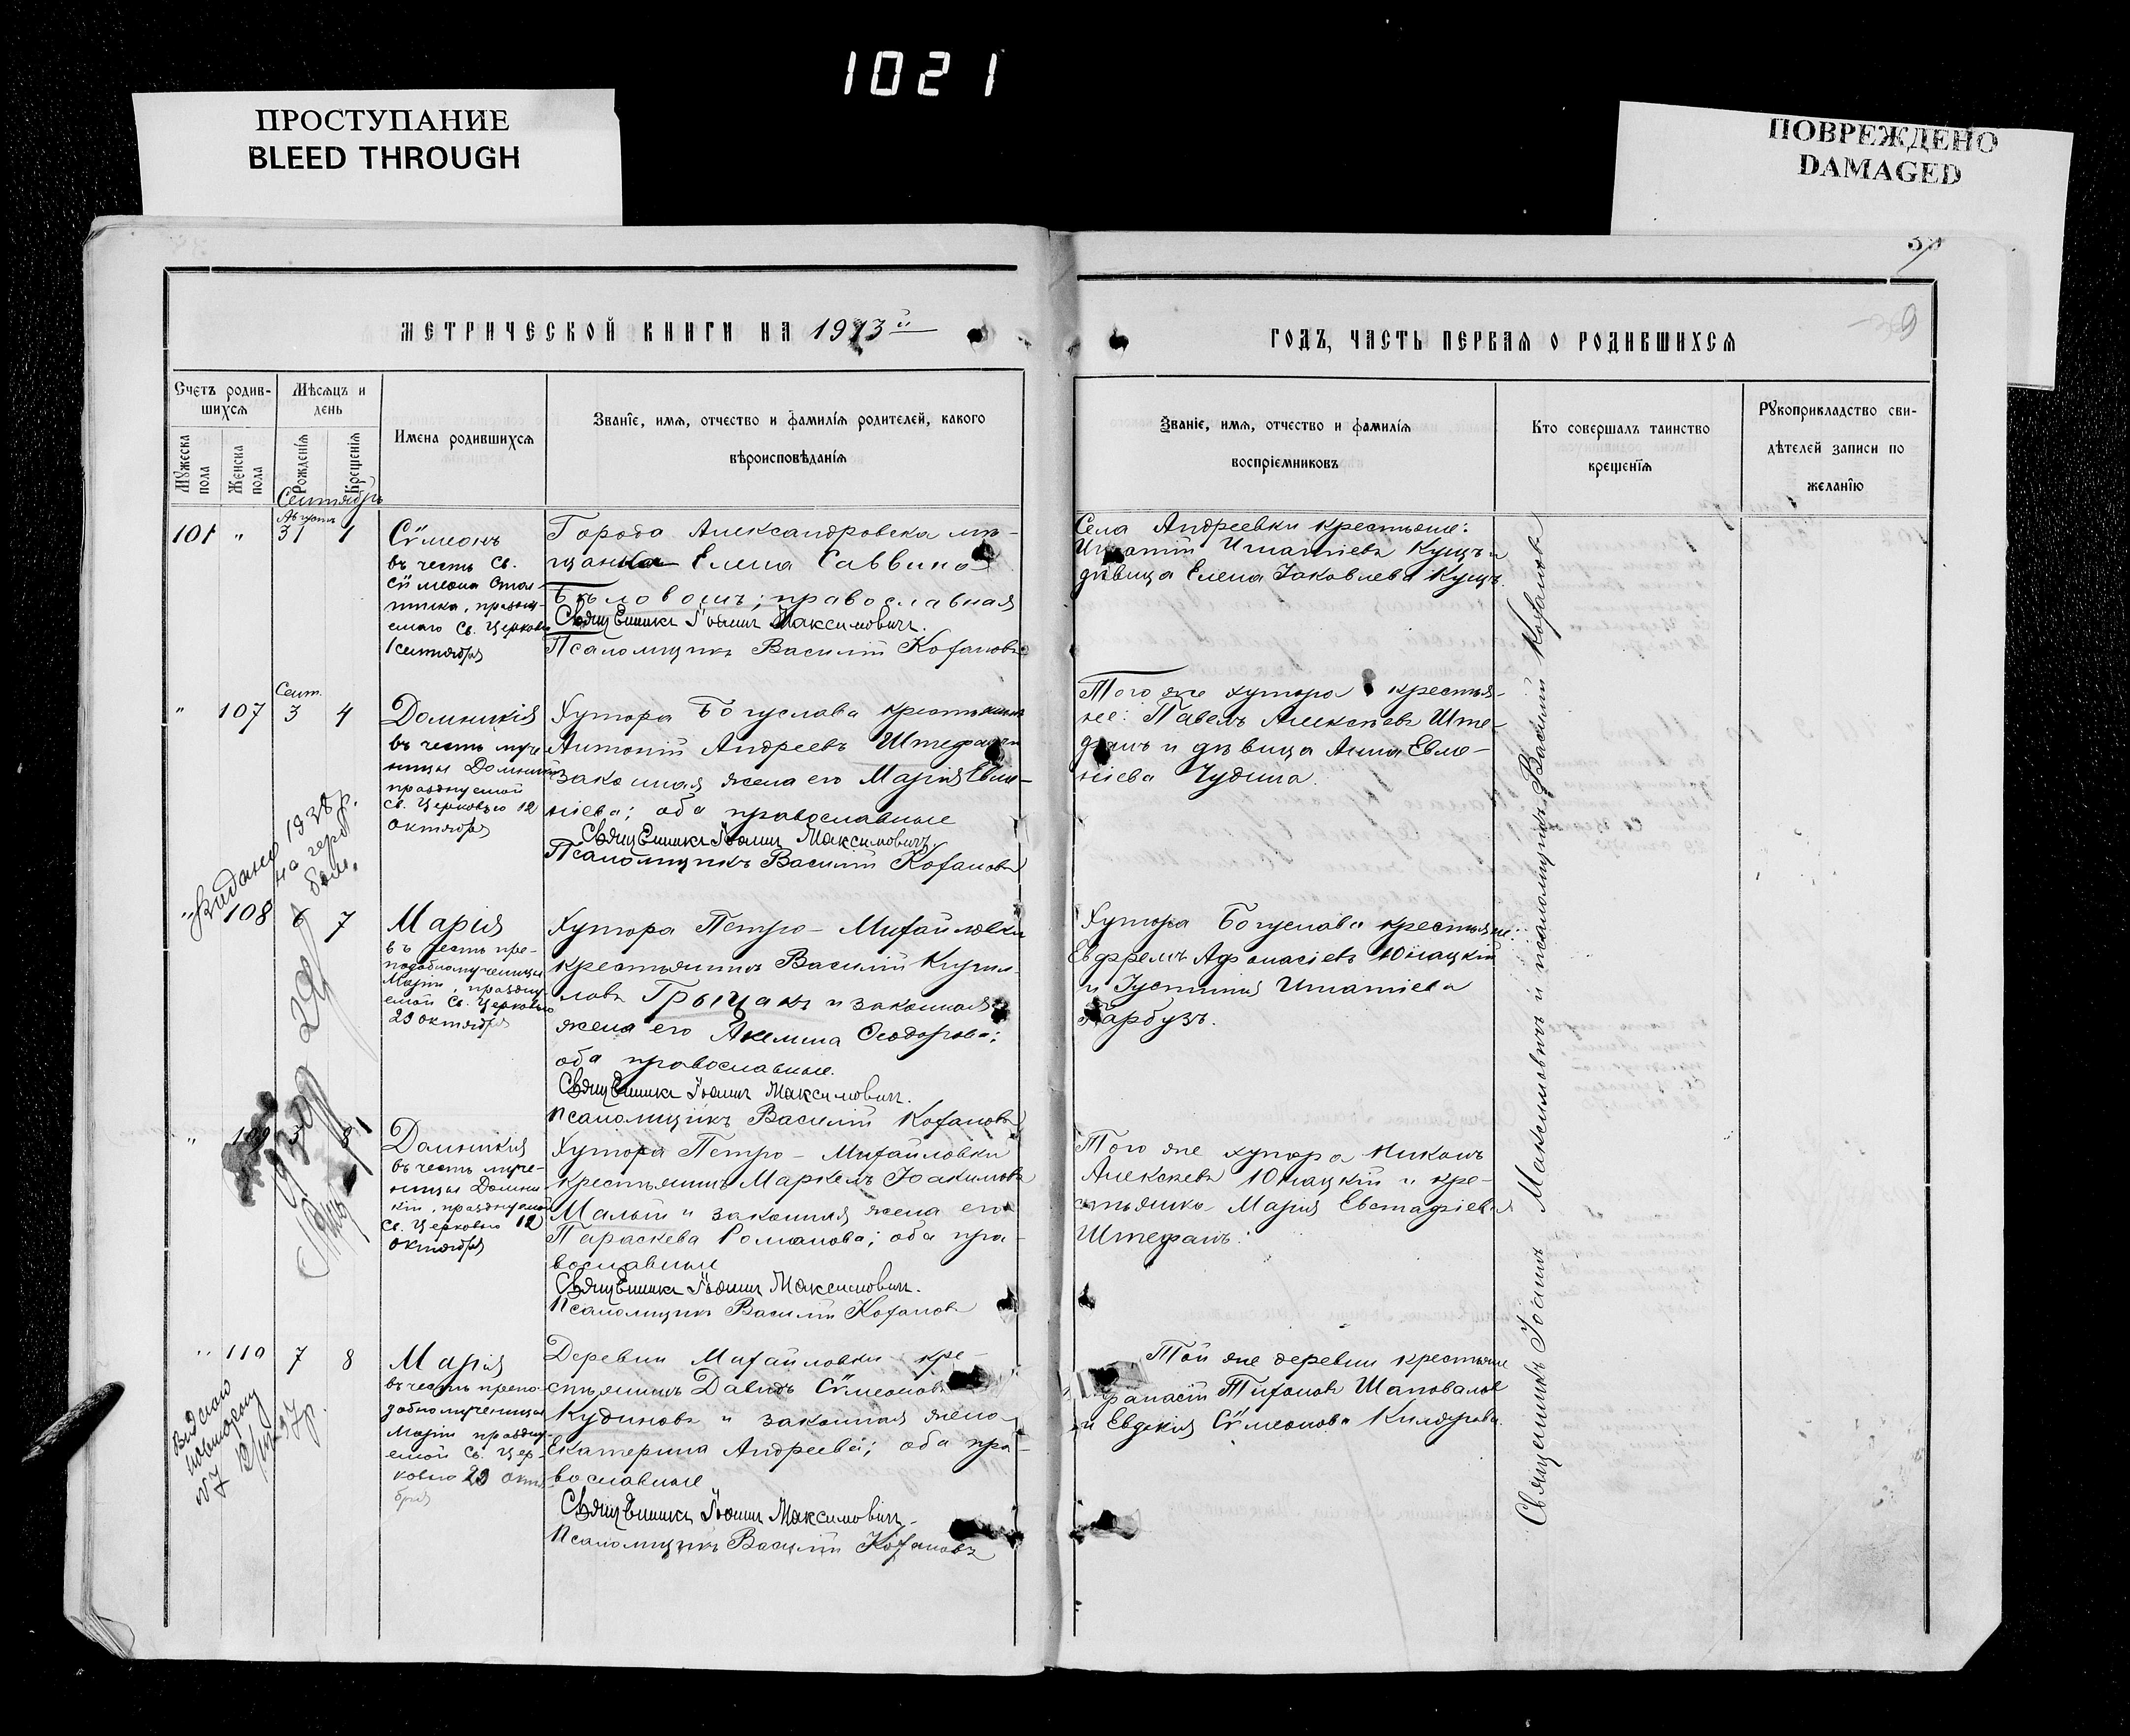 1021
ПРОСТУПАНИЕ
BLEED THROUGH
ПОВРЕЖДЕНО
DAMAGED
МЕТРИЧЕСКОЙ КНИГИ НА 1913й
ГОДЪ, ЧАСТЬ ПЕРВАЯ О РОДИВШИХСЯ
Счетъ родив-
шихся
Мѣсяцъ и
день
Мужеска
пола
Женска
пола
Рожденія
Крещенія
Имена родившихся
Званіе, имя, отчество и фамилія родителей, какого
вѣроисповѣданія
Званіе, имя, отчество и фамилія
воспріемниковъ
Кто совершалъ таинство
крещенія
Рукоприкладство сви-
дѣтелей записи по
желанію
Сентябрь
Августъ
101 " 31 1
Сѵмеонъ
въ честь Св.
Сѵмеона Стол-
пника, праздну-
емаго Св. Церковью
1 сентября
Города Александровска мѣ-
щанка Елена Саввина
Бѣловолъ; православная
Священникъ Іоаннъ Максимовичъ.
Псаломщикъ Василій Кохановъ
Села Андреевки крестьяне:
Игнатій Игнатіевъ Куцъ и
дѣвица Елена Іаковлева Куцъ.
Сент.
" 107 3 4
Домникія
въ честь муче-
ницы Домникіи
празднуемой
Св. Церковью 12
октября
Хутора Богуслава крестьянинъ
Антоній Андреевъ Штефанъ и
законная жена его Марія Евме-
ніева; оба православные
Священникъ Іоаннъ Максимовичъ.
Псаломщикъ Василій Кохановъ
Того же хутора крестья-
не: Павелъ Алексѣевъ Ште-
фанъ и дѣвица Анна Евме-
ніева Чудина.
Видано 1938р.
" 108 6 7
Марія
въ честь пре-
подобномученицы
Маріи, праздну-
емой Св. Церковью
29 октября
Хутора Петро-Михайловки
крестьянинъ Василій Кирил-
ловъ Грыцакъ и законная
жена его Акелина Ѳеодорова;
оба православные.
Священникъ Іоаннъ Максимовичъ.
Псаломщикъ Василій Кохановъ
Хутора Богуслава крестьяне:
Ефремъ Афонасіевъ Юнацкій
и Іустинія Игнатіева
Гарбузъ.
" 109 8
Домникія
въ честь муче-
ницы Домни-
кіи, празднуемой
Св. Церковью 12
октября
Хутора Петро-Михайловки
крестьянинъ Маркелъ Іоакимовъ
Малый и законная жена его
Параскева Романова; оба пра-
вославные
Священникъ Іоаннъ Максимовичъ.
Псаломщикъ Василій Кохановъ
Того же хутора Никонъ
Алексѣевъ Юнацкій и кре-
стьянка Марія Евстафіева
Штефанъ.
" 110 7 8
Марія
въ честь препо-
добномученицы
Маріи праздну-
емой Св. Цер-
ковью 29 октя-
бря
Деревни Михайловки кре-
стьянинъ Давидъ Сѵмеоновъ
Кудиновъ и законная жена
Екатерина Андреева; оба пра-
вославные
Священникъ Іоаннъ Максимовичъ.
Псаломщикъ Василій Кохановъ
Той же деревни крестьяне
Тихоновъ Шаповалов
и Евдокія Сѵмеонова
Священникъ Іоаннъ Максимовичъ и псаломщикъ Василій Кохановъ